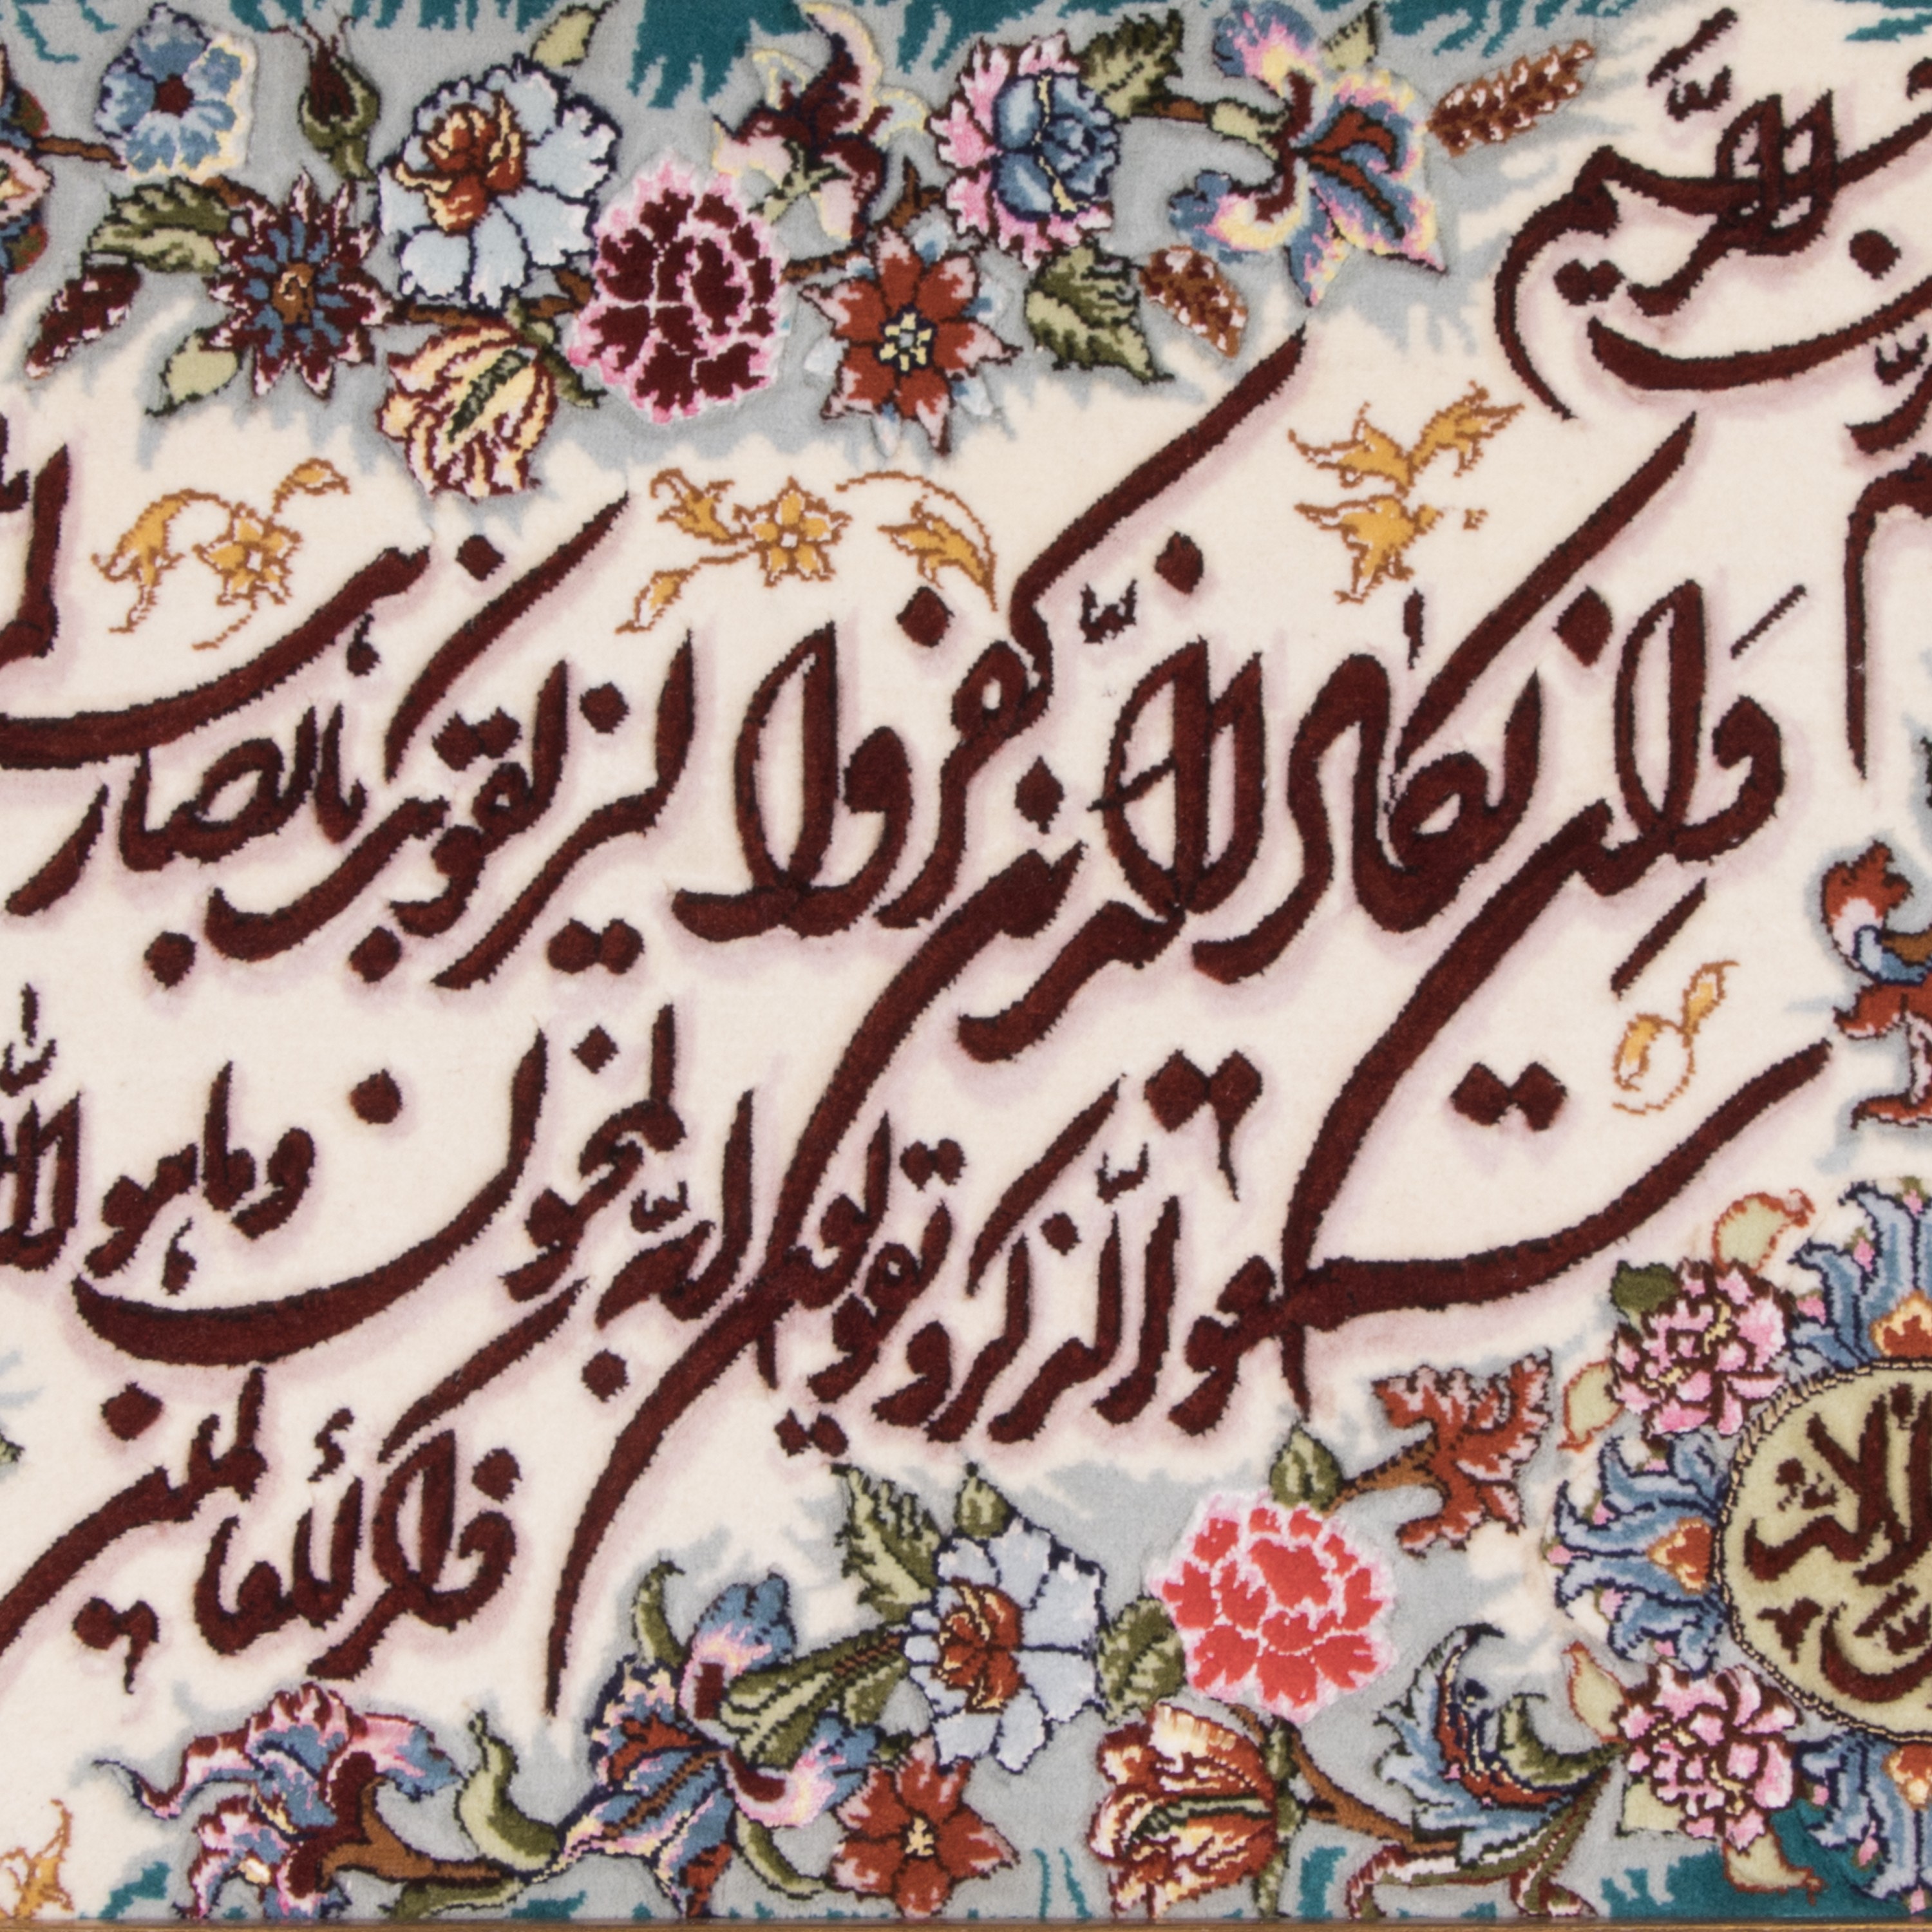 الرحیم
وان یکاد الذین کفروا لیزلقونک بابصارهم
لما
سمعوا الذکر و یقولون انه لمجنون و ما هو الا
ذکر للعالمین